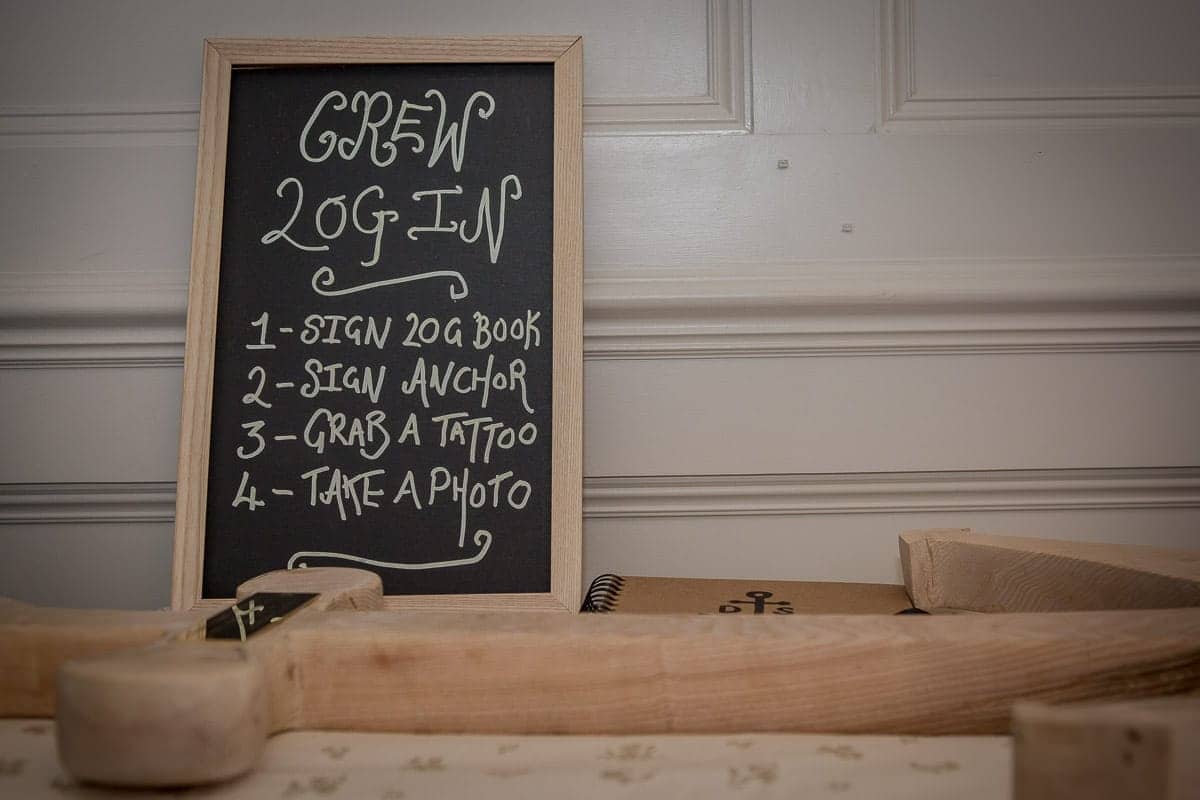 CREW
LOG IN
1 - SIGN LOG BOOK
2 - SIGN ANCHOR
3 - GRAB A TATTOO
4 - TAKE A PHOTO
D S